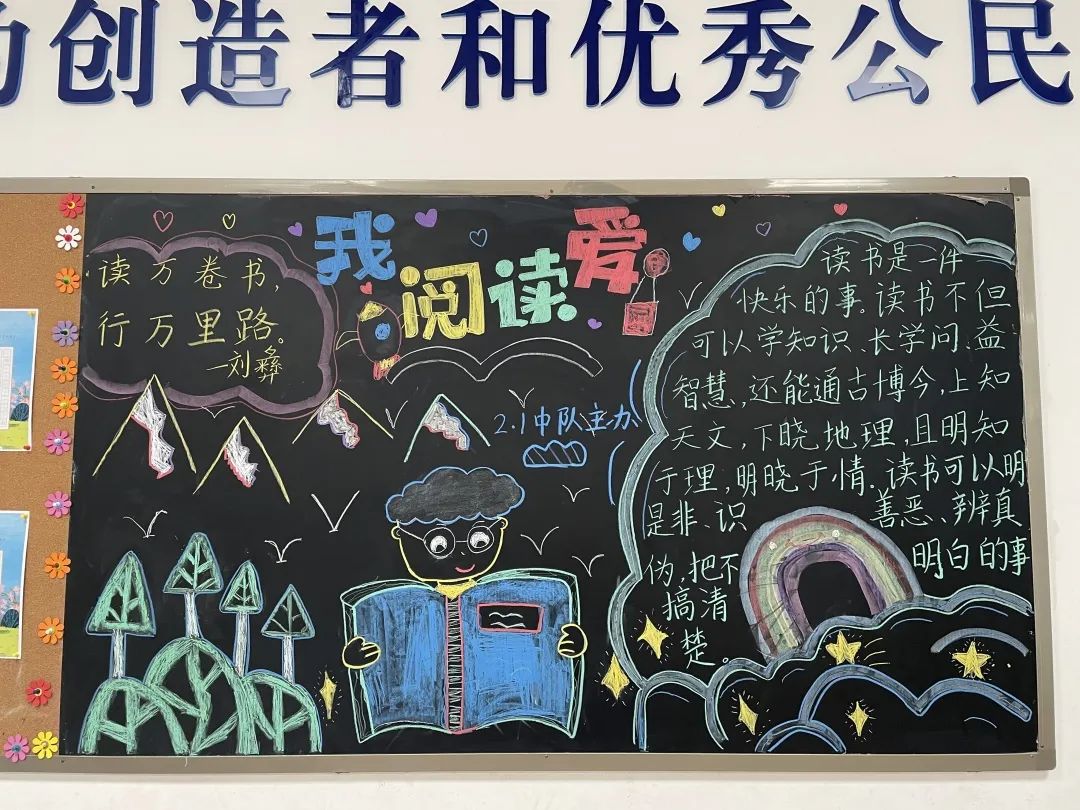 创造者和优秀公民
我爱
阅读
读万卷书,
行万里路。
—刘彝
2.1中队主办
读书是一件
快乐的事。读书不但
可以学知识、长学问、益
智慧,还能通古博今,上知
天文,下晓地理,且明知
于理,明晓于情.读书可以明
是非、识善恶、辨真
伪,把不明白的事
搞清
楚。